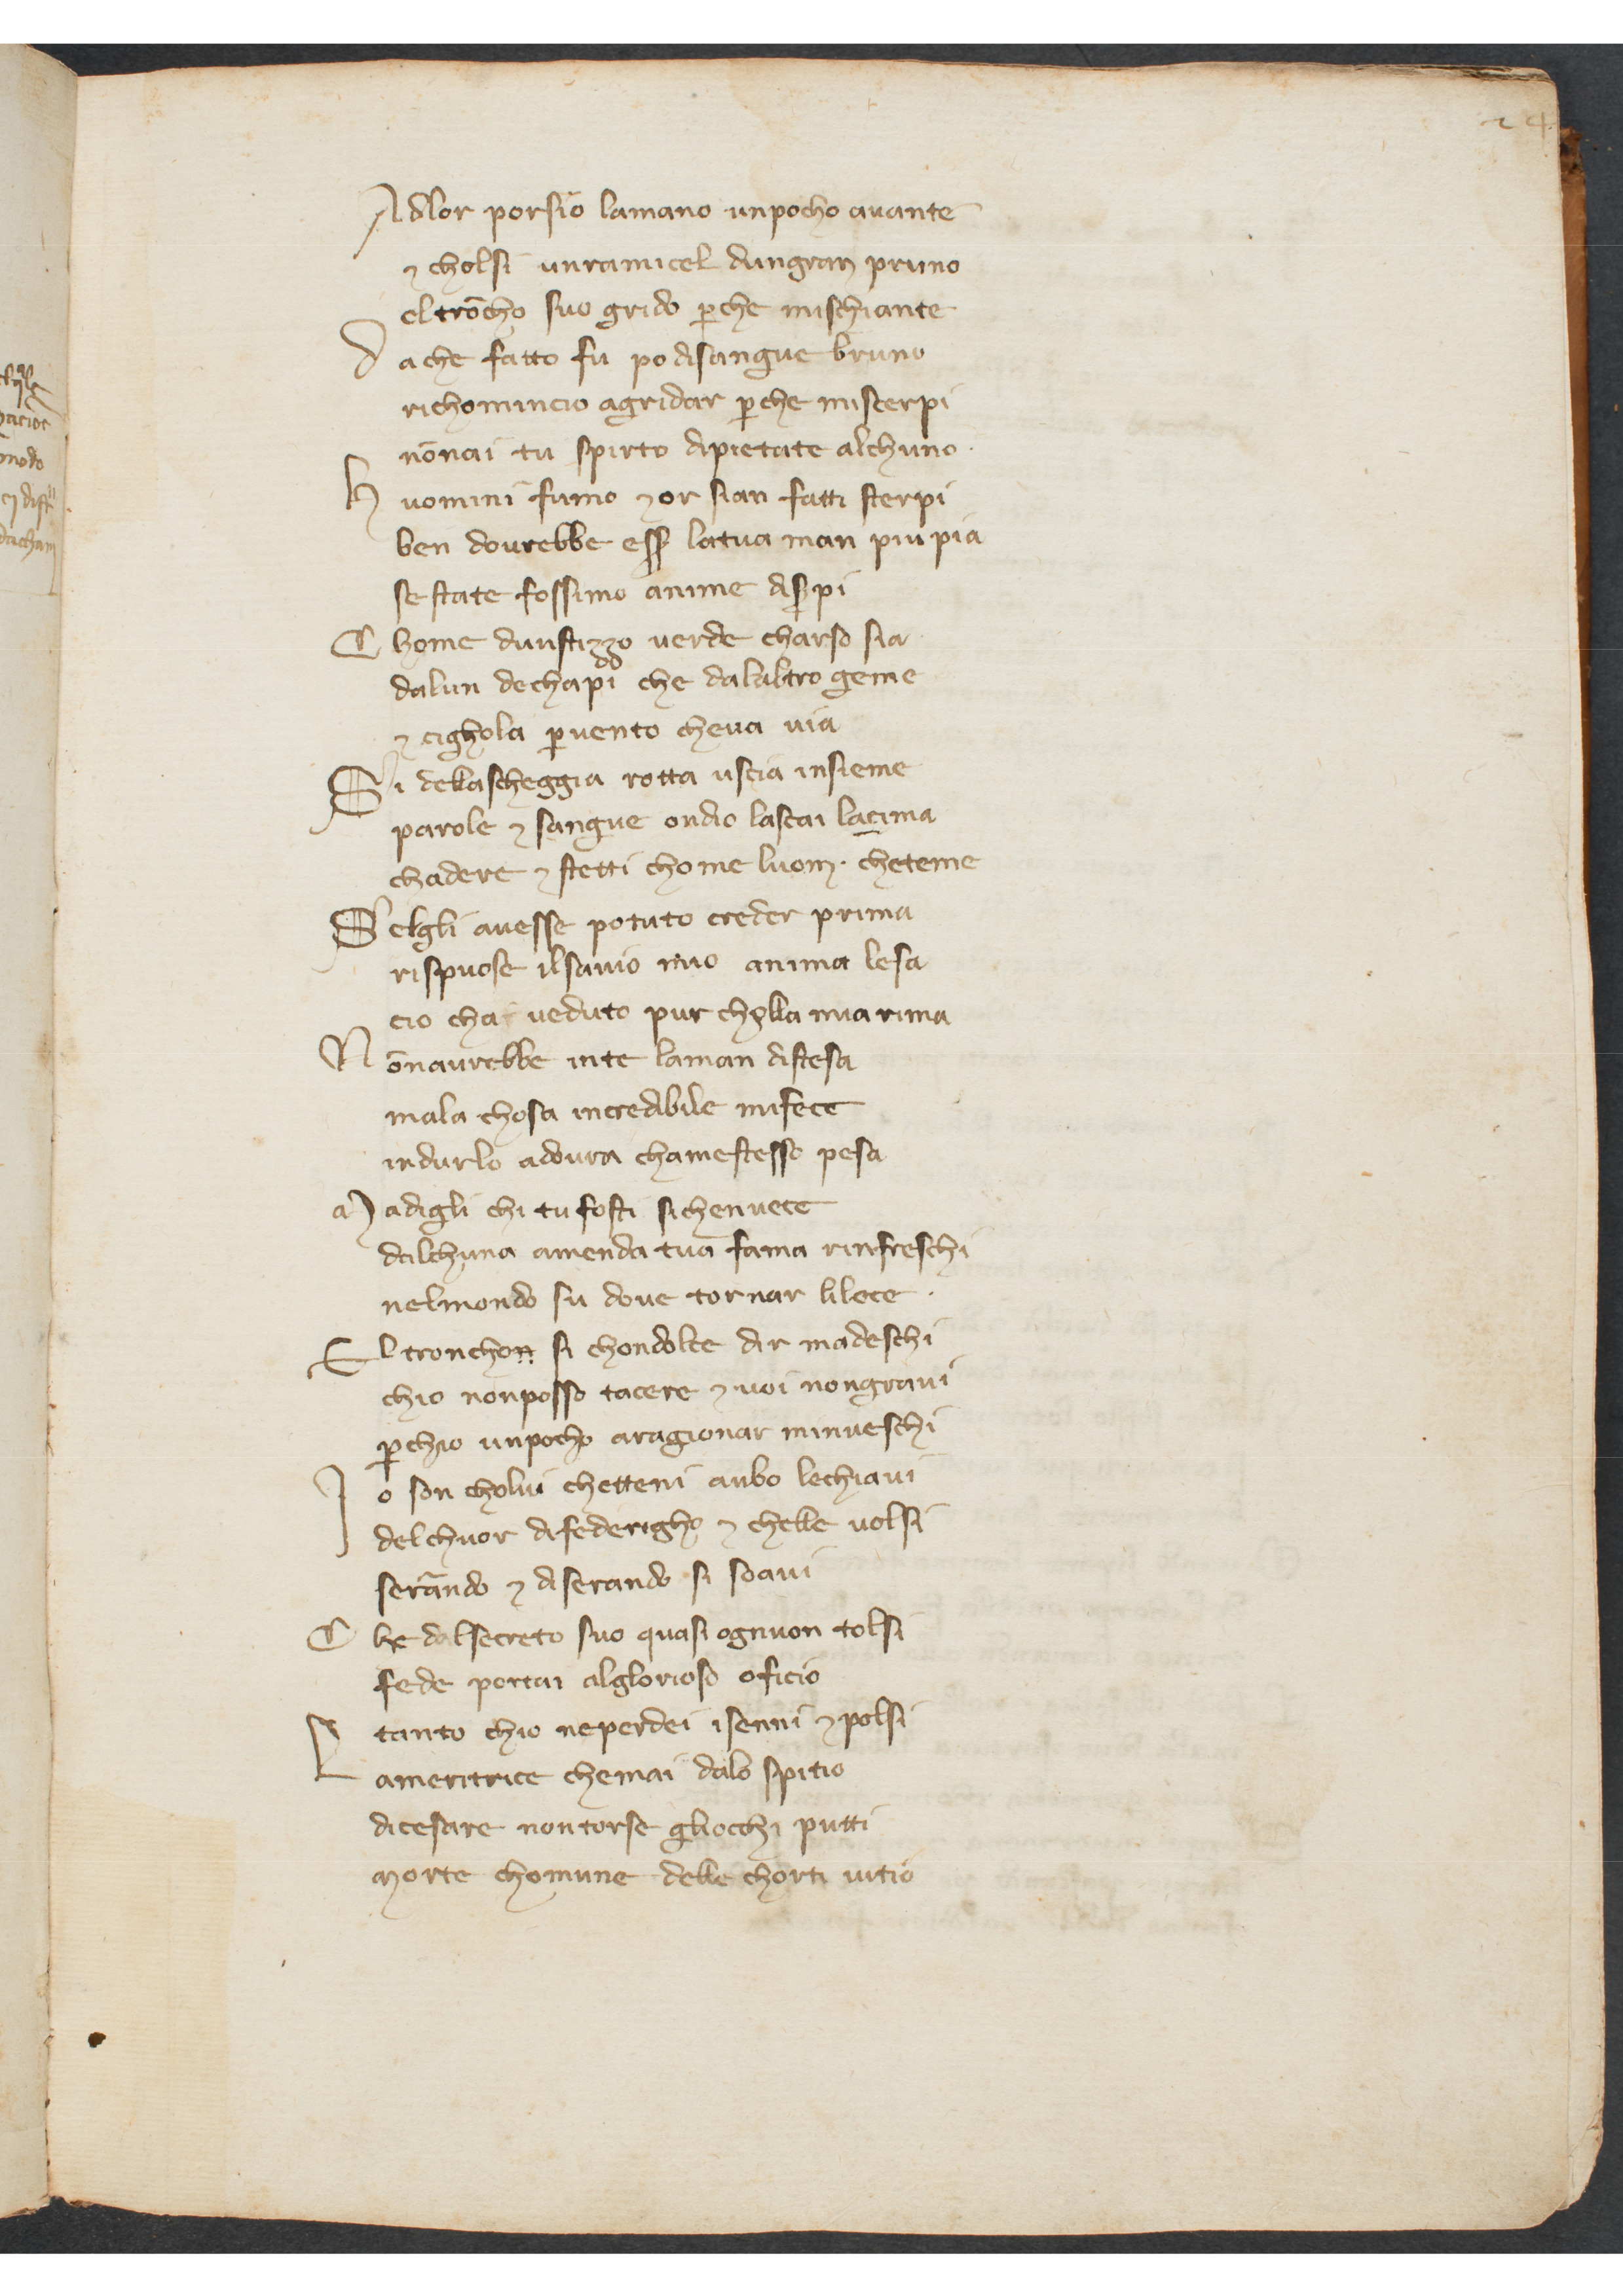 24
Adlor porsio lamano unpocho avante
⁊ cholsi unramicel dungran pruno
el trōcho suo grido ꝑche mischiante
Da che fatto fu po disangue bruno
richomincio agridar ꝑche miscerpi
nōnai tu spirto dipietate alchuno .
Huomini fumo ⁊ or sian fatti sterpi
ben dovrebbe essꝭ latua man piu pia
se state fossimo anime disꝑpi
Chome dunstizzo verde charso sia
dalun dechapi che dalaltro geme
⁊ cighola ꝑvento cheva via
Si dellascheggia rotta uscia insieme
parole ⁊ sangue ondio lascai lacima
chadere ⁊ stetti chome luom . cheteme
Selgli avesse potuto creder prima
rispuose ilsavio mio anima lesa
cio cha veduto pur cholla mia rima
Nōnavrebbe inte laman distesa
mala chosa incredibile mifece
indurlo adovra chamestesso pesa
Madigli chi tu fosti sichenvece
dalchuna amenda tua fama rinfreschi
nelmondo su dove tornar lilece .
El tronchon si chondolce dir madeschi
chio nonposso tacere ⁊ voi nongravi
ꝑchio unpocho aragionar minveschi
Io son cholui chetteni anbo lechiavi
delchuor difederigho ⁊ chelle volsi
serrando ⁊ diserando si soavi
Che dalsecreto suo quasi ognuon tolsi
fede portai alglorioso oficio
tanto chio neperdei isenni ⁊ polsi
Lameritrice chemai dalo spitio
dicesare non torse gliocchi putti
morte chomune delle chorti vitio